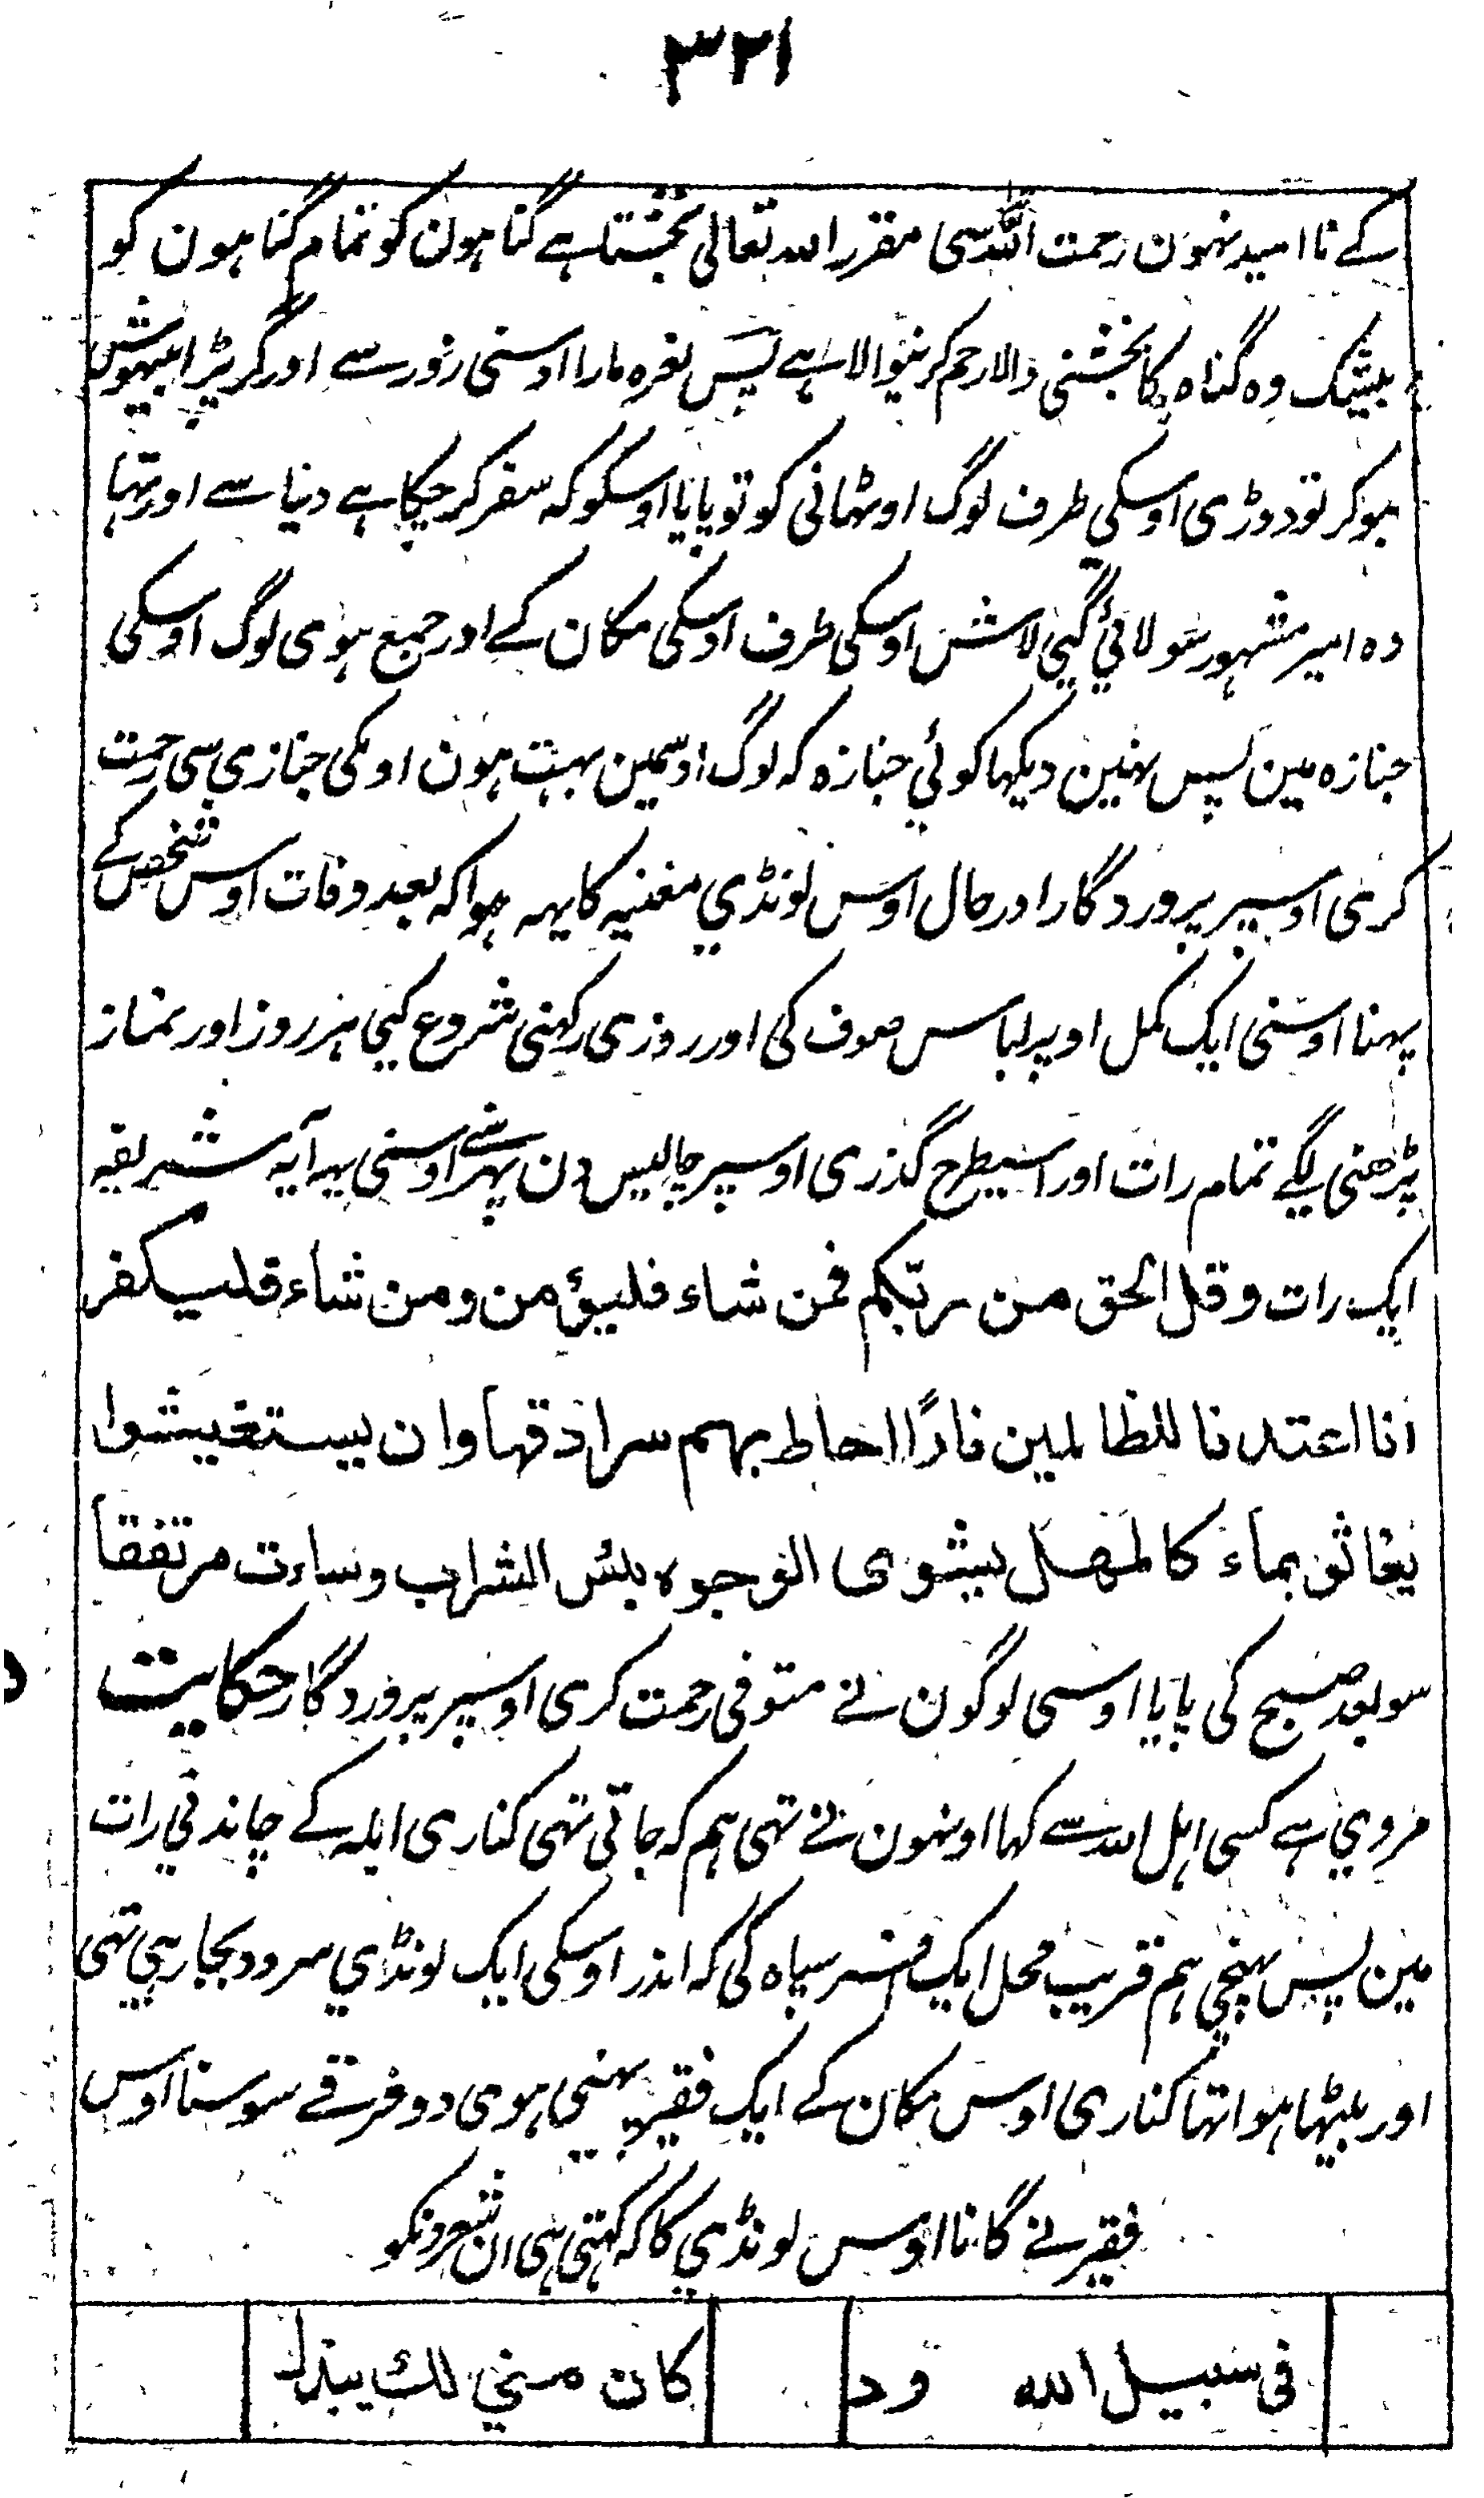 ۳۲۱
کے نا امید نہون رحمت اللہ سی مقرر اللہ تعالی بخشتا ہے گنا ہون کو تمام گنا ہون کو
بیشک وہ گناہ کا بخشنی والا رحم کرنیوالا ہے پس نعرہ مارا اوسنی زور سے اور گر پڑا بیہوش
ہو کر تو دوڑی اوسکی طرف لوگ اوٹہانی کو تو پایا اوسکو کہ سفر کر چکا ہے دنیا سے اور تہا
وہ امیر مشہور سو لائی گئی لاش اوسکی طرف اوسکی مکان کے اور جمع ہوی لوگ اوسکی
جنازہ مین پس نہین دیکہا کوئی جنازہ کہ لوگ اوسمین بہت ہون اوسکی جنازی سی رحمت
کری اوسپر پروردگار اور حال اوس لونڈی مغنیہ کا یہہ ہوا کہ بعد وفات اوس شخص کے
پہنا اوسنی ایک کمل اوپر لباس صوف کی اور روزی رکہنی شروع کیی ہر روز اور نماز
پڑھنی لگے تمام رات اور اسیطرح گذری اوسپر چالیس دن پہر سنے اوسنی یہہ آیہ شریفہ
ایک رات وقل الحق من ربّکم فمن شاء فلیؤمن ومن شاء فلیکفر
انا اعتدنا للظالمین نارًا احاط بہم سرادقہا وان یستغیثوا
یغاثو بماء کالمھل یشوی الوجوہ بئس الشراب وساءت مرتفقا
سو بعد صبح کی پایا اوسی لوگون نے متوفی رحمت کری اوسپر پروردگار حکایت
مروی ہے کسی اہل اللہ سے کہا اونہون نے تہی ہم کہ جاتی تہی کناری ایلہ کے چاندنی رات
مین پس پہنچی ہم قریب محل ایک افسر سپاہ کی کہ اندر اوسکی ایک لونڈی سرود بجا رہی تہی
اور بیٹہا ہوا تہا کناری اوس مکان کے ایک فقیر پہنی ہوی دو خرقے سو سنا اوس
فقیر نے گانا اوس لونڈی کا کہ کہتی ہی ان شعرونکو
فی سبیل اللہ ود کان منی لك یبذل